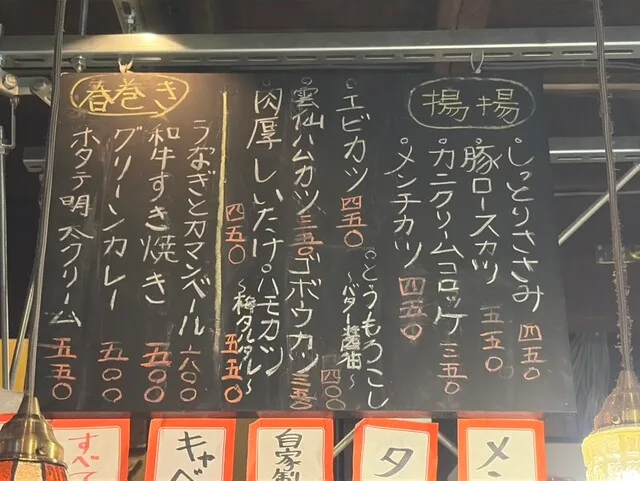 揚揚
しっとりささみ 四五〇
豚ロースカツ 五五〇
カニクリームコロッケ 三五〇
メンチカツ 四五〇
エビカツ 四五〇
とうもろこし
〜バター醤油〜 四〇〇
雲仙ハムカツ 三五〇
ゴボウカツ 三五〇
肉厚しいたけ 四五〇
ハモカツ
〜梅タルタル〜 五五〇
春巻き
うなぎとカマンベール 六〇〇
和牛すき焼き 五〇〇
グリーンカレー 五〇〇
ホタテ明太クリーム 五五〇
メン
タ
自家製
キャベ
すべて